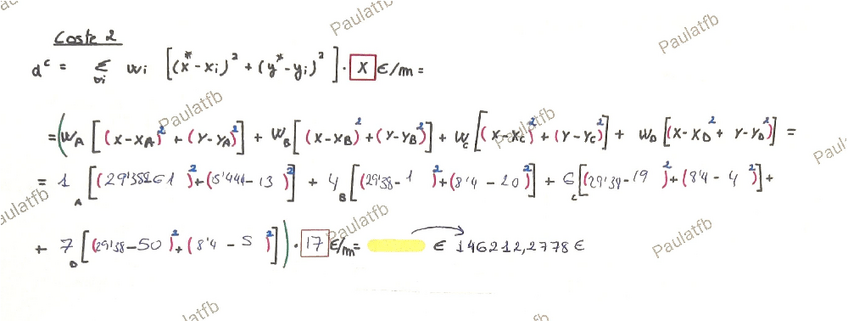 Coste 2
d^c = Σ_∀i wi [(x* - xi)² + (y* - yi)²] · X €/m =
= (W_A [(X - X_A)² + (Y - Y_A)²] + W_B [(X - X_B)² + (Y - Y_B)²] + W_C [(X - X_C)² + (Y - Y_C)²] + W_D [(X - X_D² + Y - Y_D)²] =
= 1_A [( )² + ( - 13)²] + 4_B [(29'38 - 1)² + (8'4 - 20)²] + 6_C [(29'39 - 19)² + (8'4 - 4)²] +
+ 7_D [(29'38 - 50)² + (8'4 - 5)²]) · 17 €/m = € 146212,2778 €
Paulatfb
Paulatfb
Paulatfb
Paulatfb
Paula
aulatfb
Paulatfb
Paulatfb
Paulatfb